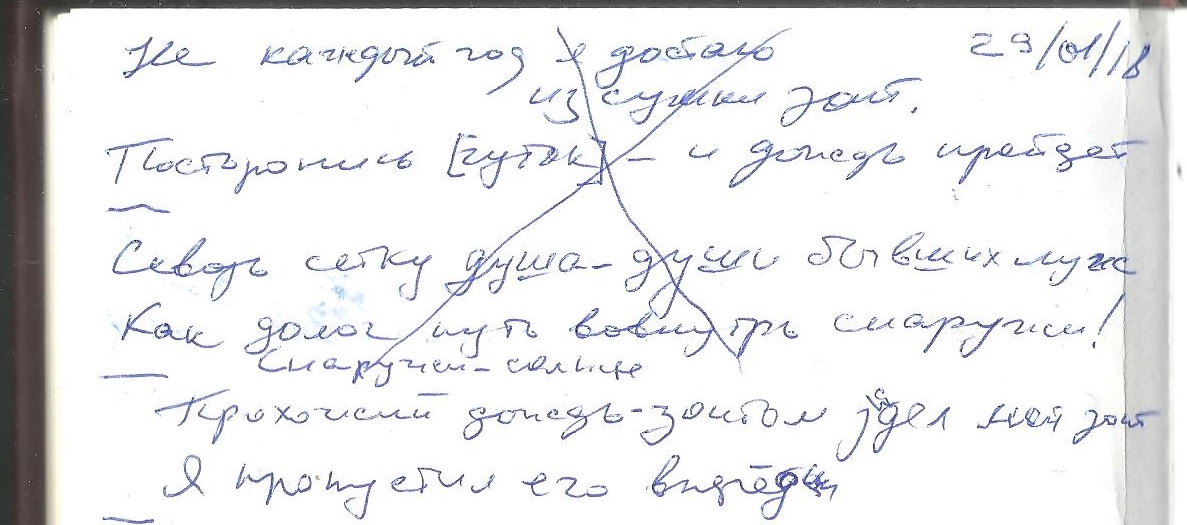 Не каждый год я достаю 29/01/18
из сумки зонт.
Посторонись [чуток] – и дождь пройдет
Сквозь сетку душа – души бывших луж
Как долог путь вовнутрь снаружи!
Снаружи – солнце
Прохожий дождь – зонтом задел мой зонт
Я пропустил его вперёд